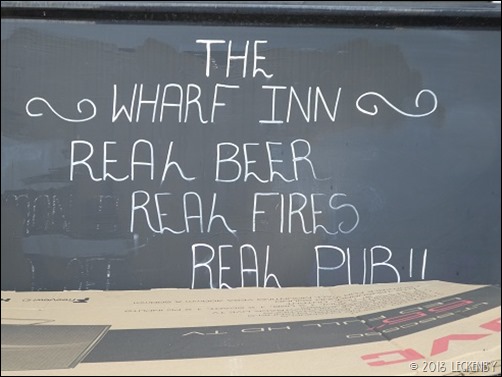 THE
WHARF INN
REAL BEER
REAL FIRES
REAL PUB!!
FULL HD TV
© 2018 LECKENBY